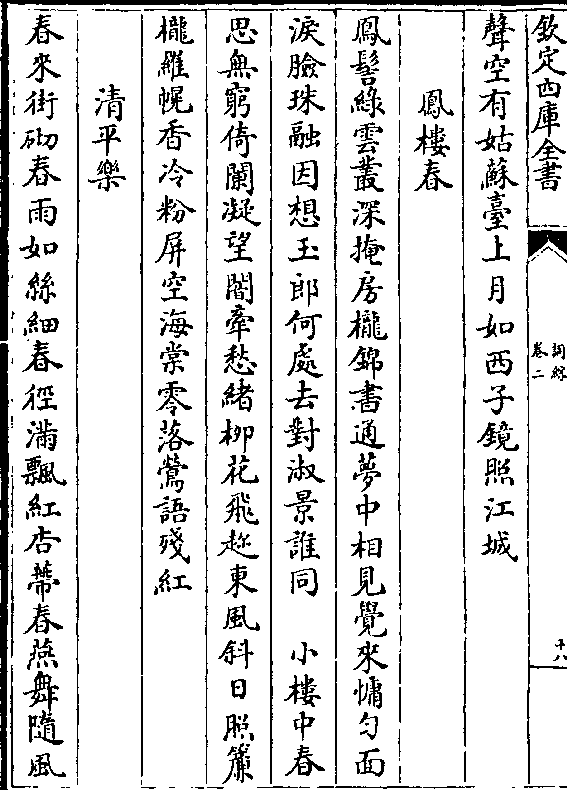 欽定四庫全書
詞綜
卷二
十八
聲空有姑蘇臺上月如西子鏡照江城
鳳樓春
鳳髻綠雲叢深掩房櫳錦書通夢中相見覺來慵勻面
淚臉珠融因想玉郎何處去對淑景誰同　小樓中春
思無窮倚闌凝望闇牽愁緒栁花飛趂東風斜日照簾
櫳羅幌香冷粉屏空海棠零落鶯語殘紅
清平樂
春來街砌春雨如絲細春徑滿飄紅杏蔕春燕舞隨風